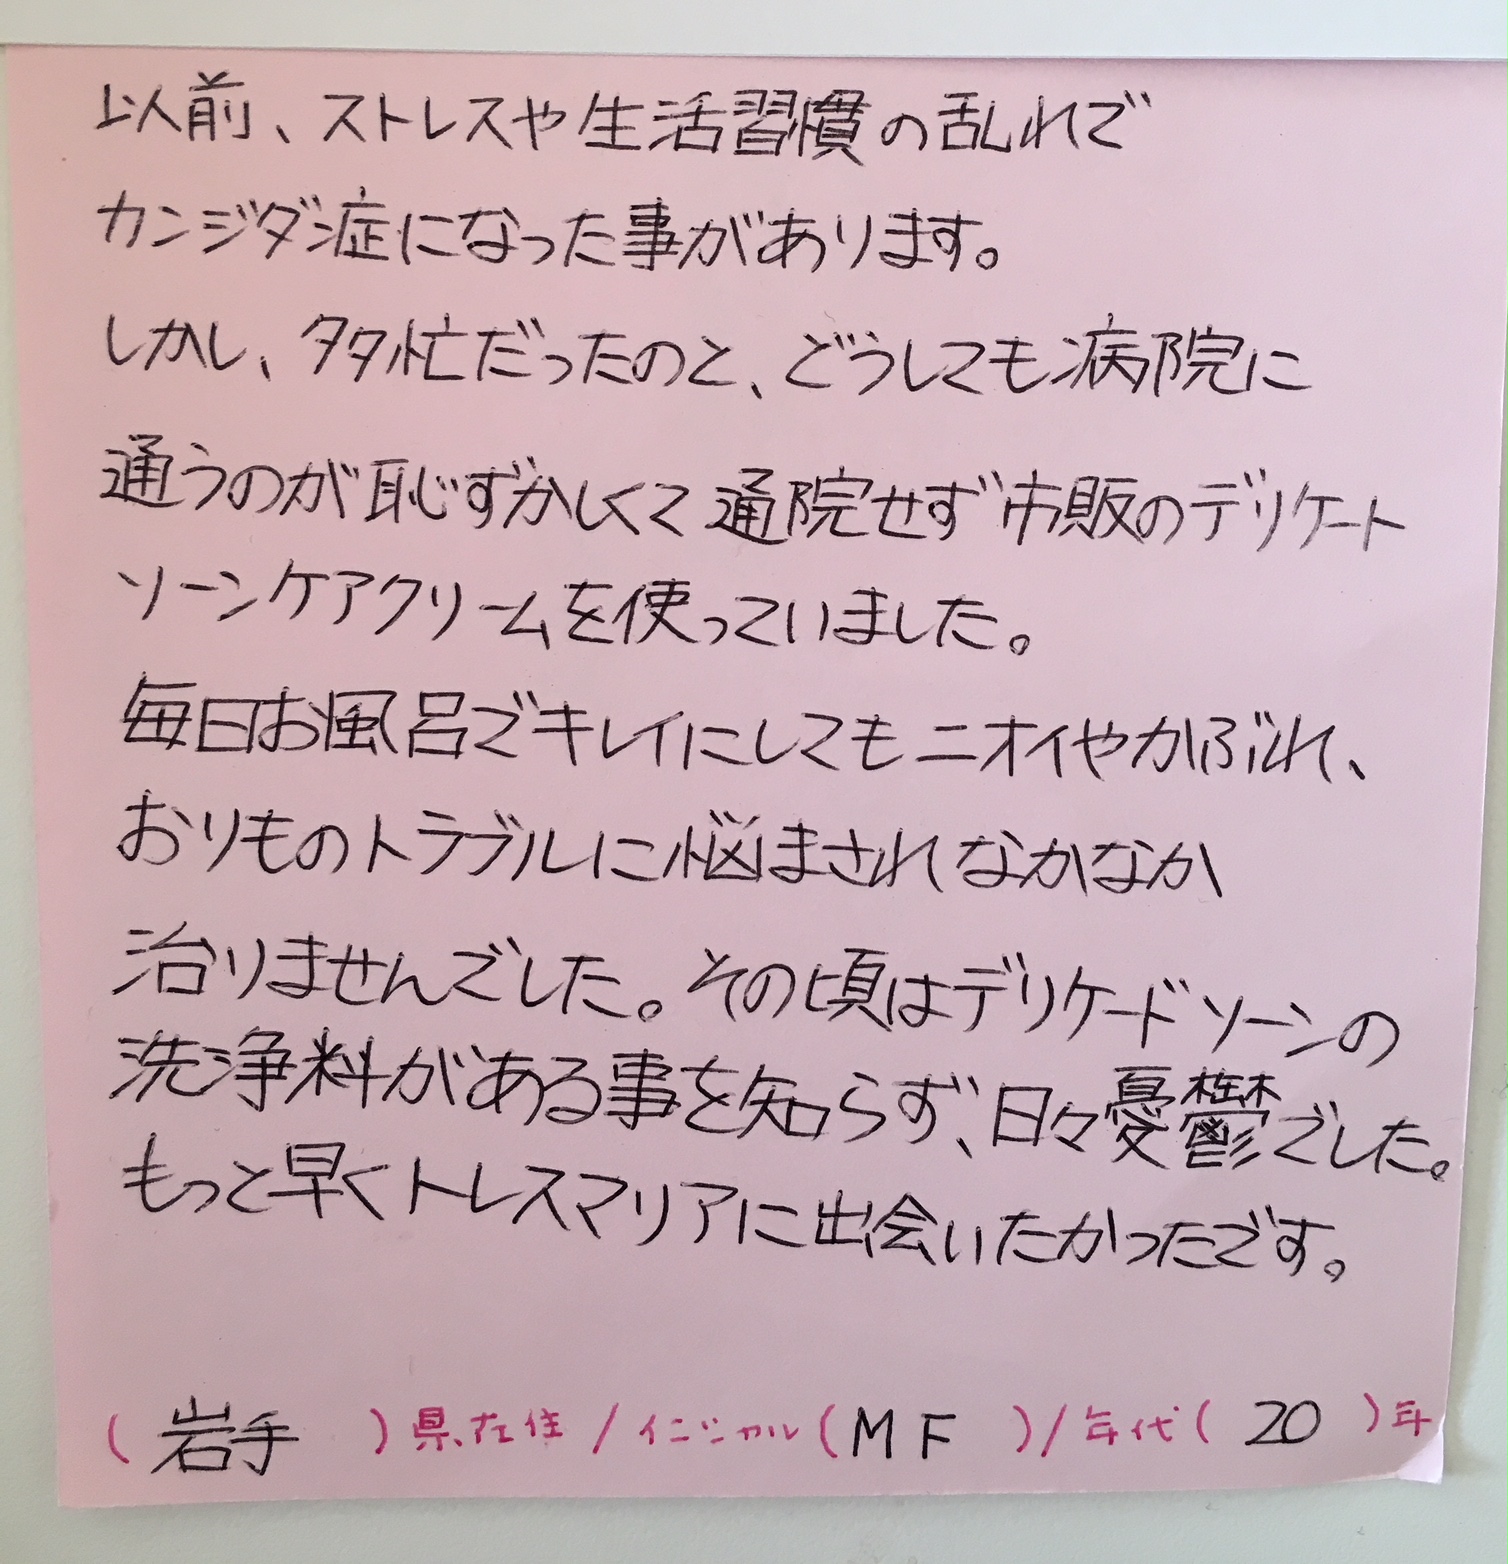 以前、ストレスや生活習慣の乱れで
カンジダ症になった事があります。
しかし、多忙だったのと、どうしても病院に
通うのが恥ずかしくて通院せず市販のデリケート
ゾーンケアクリームを使っていました。
毎日お風呂でキレイにしてもニオイやかぶれ、
おりものトラブルに悩まされなかなか
治りませんでした。その頃はデリケードゾーンの
洗浄料がある事を知らず、日々憂鬱でした。
もっと早くトレスマリアに出会いたかったです。
(岩手)県在住/イニシャル(MF)/年代(20)年